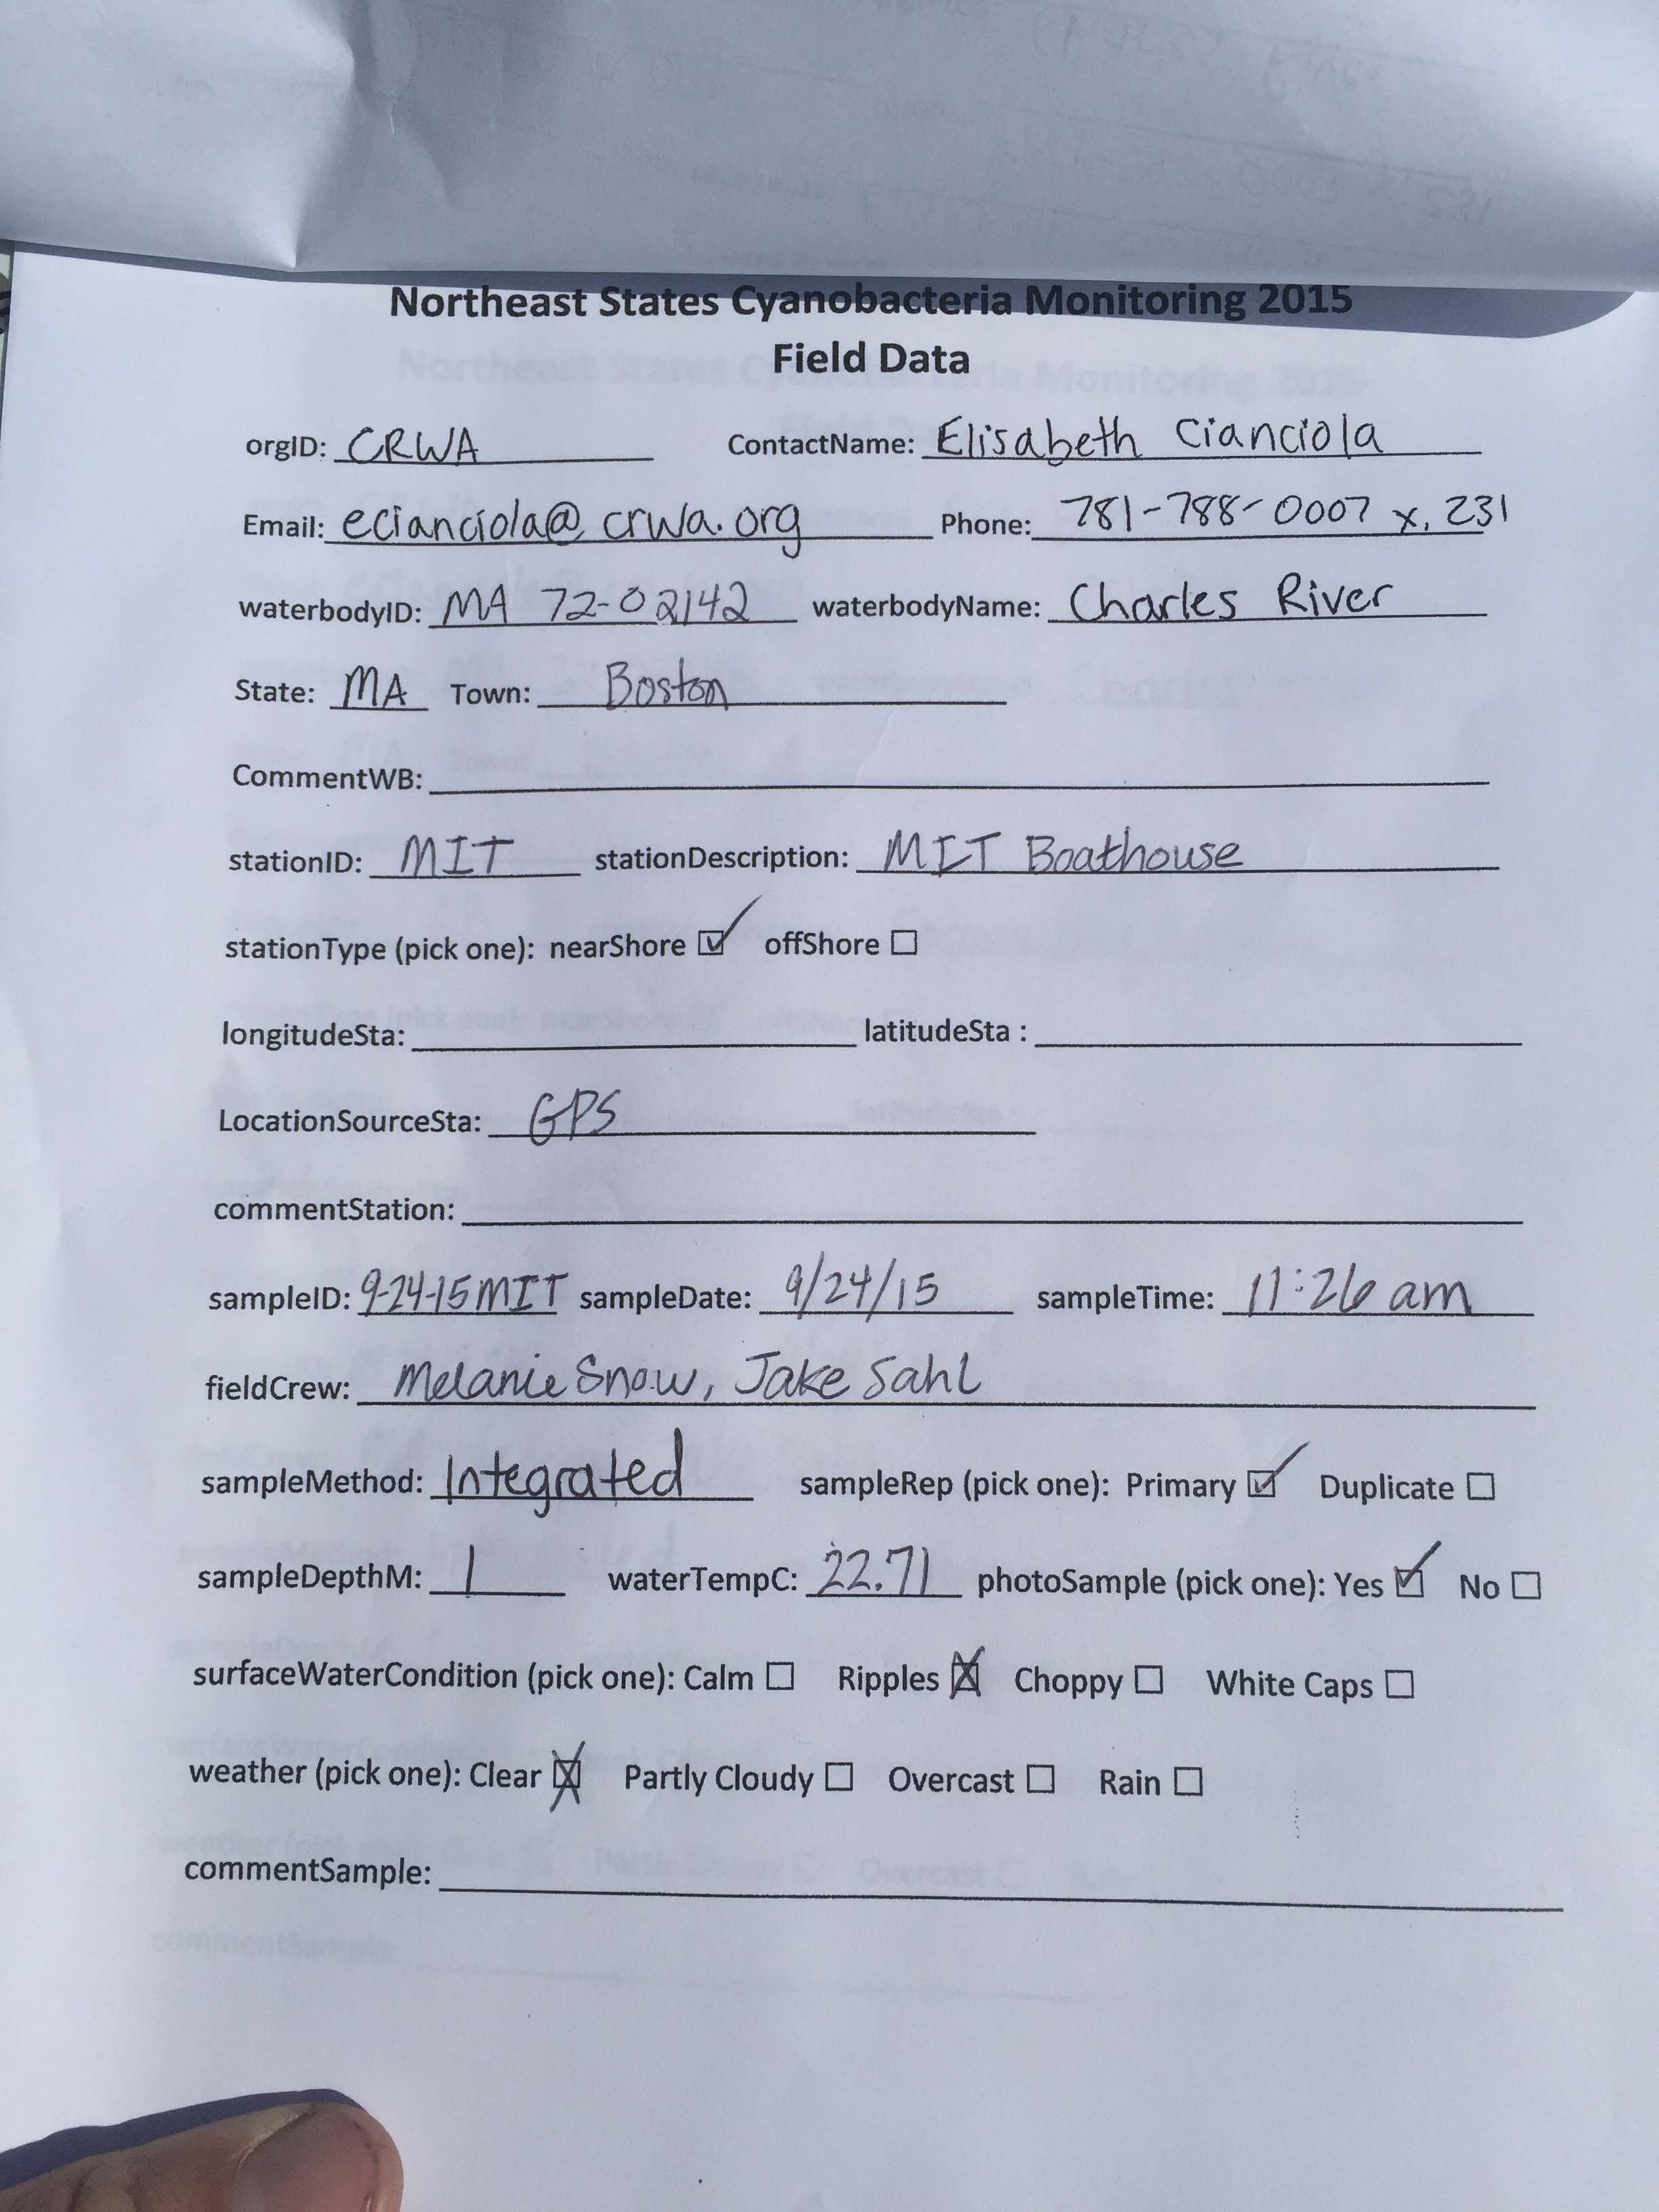 Northeast States Cyanobacteria Monitoring 2015
Field Data
orgID: CRWA ContactName: Elisabeth Cianciola
Email: ecianciola@crwa.org Phone: 781-788-0007 x. 231
waterbodyID: MA 72-02142 waterbodyName: Charles River
State: MA Town: Boston
CommentWB:
stationID: MIT stationDescription: MIT Boathouse
stationType (pick one): nearShore ☑ offShore ☐
longitudeSta: latitudeSta :
LocationSourceSta: GPS
commentStation:
sampleID: 9-24-15MIT sampleDate: 9/24/15 sampleTime: 11:26 am
fieldCrew: Melanie Snow, Jake Sahl
sampleMethod: Integrated sampleRep (pick one): Primary ☑ Duplicate ☐
sampleDepthM: 1 waterTempC: 22.71 photoSample (pick one): Yes ☑ No ☐
surfaceWaterCondition (pick one): Calm ☐ Ripples ☒ Choppy ☐ White Caps ☐
weather (pick one): Clear ☒ Partly Cloudy ☐ Overcast ☐ Rain ☐
commentSample: